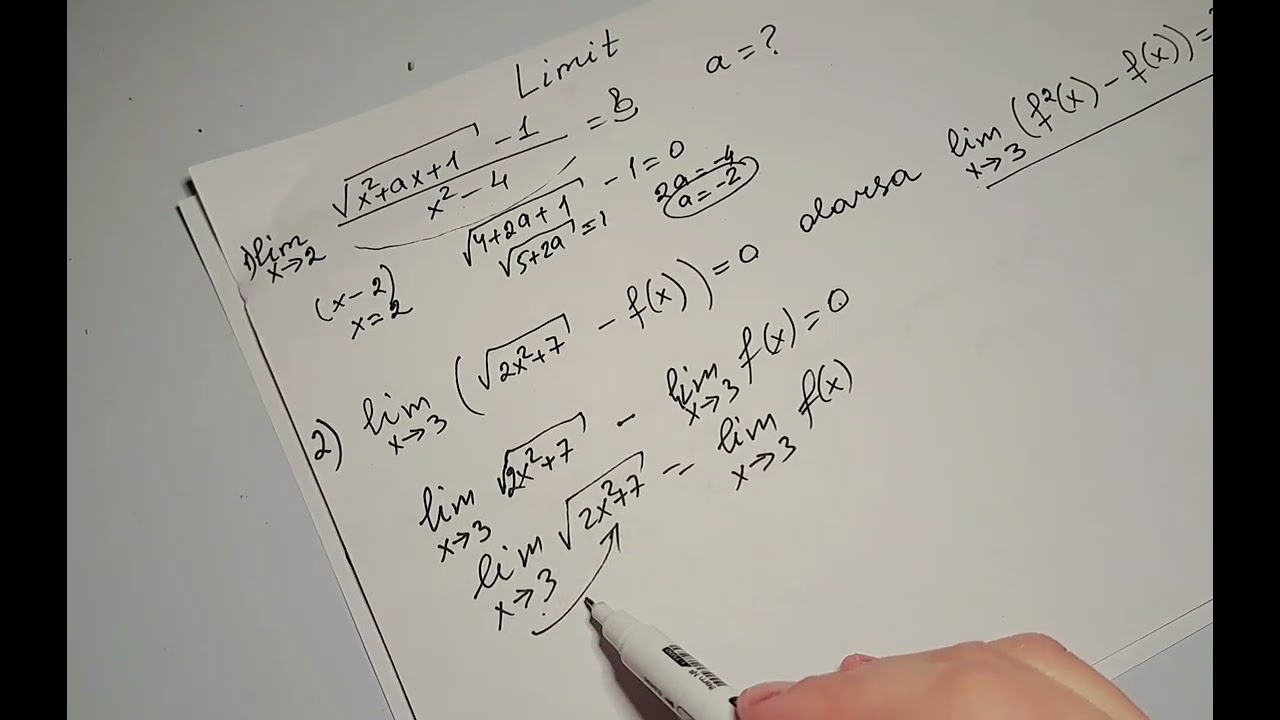 Limit
a = ?
1) lim x→2 (√(x²+ax+1) - 1)/(x² - 4) = b
(x-2)
x=2
√(4+2a+1) - 1 = 0
√(5+2a) = 1
2a = -4
a = -2
2) lim x→3 (√(2x²+7) - f(x)) = 0 olarsa lim x→3 (f²(x) - f(x)) =
lim x→3 √(2x²+7) - lim x→3 f(x) = 0
lim x→3 √(2x²+7) = lim x→3 f(x)